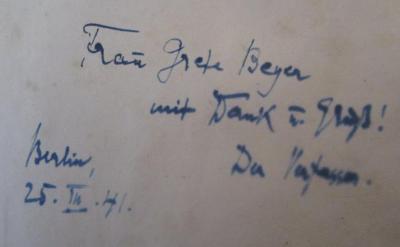 Frau Grete Beyer
mit Dank u. Gruß!
Der Verfasser.
Berlin,
25. III. 41.